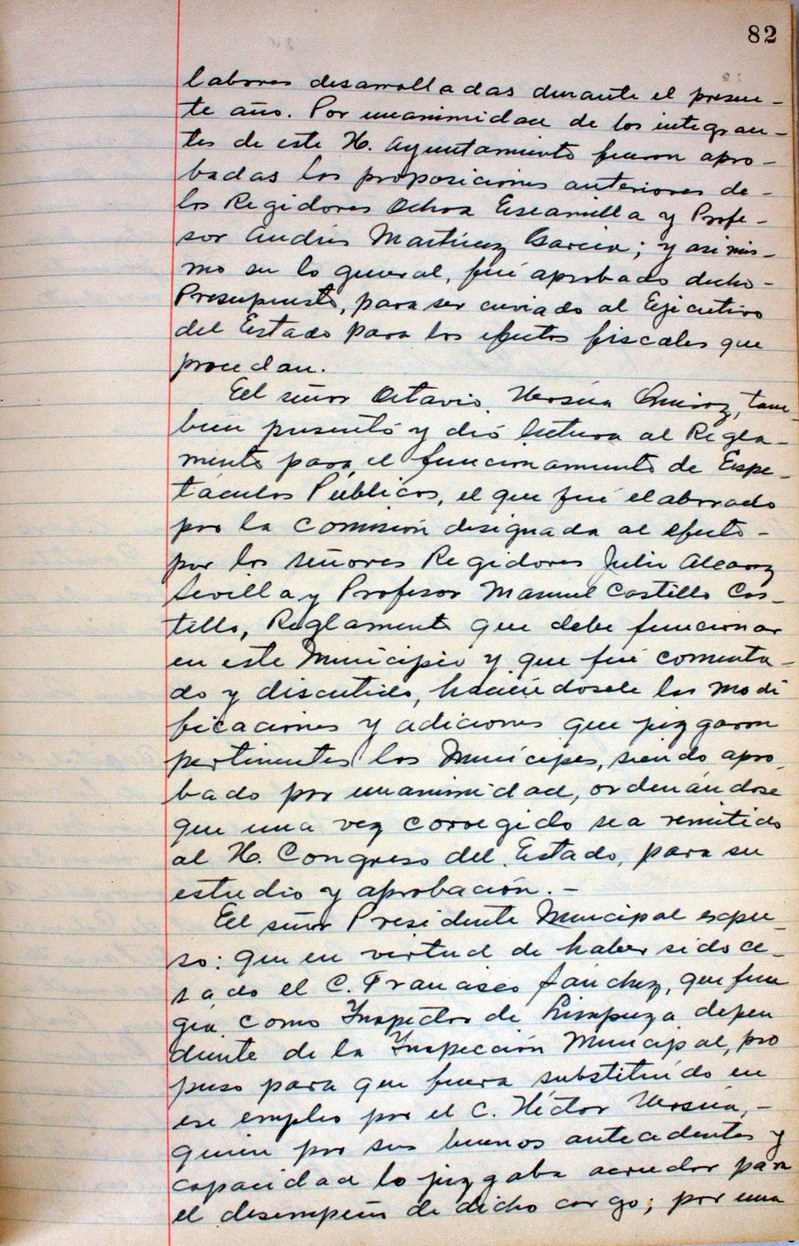 82
labores desarrolladas durante el presen-
te año. Por unanimidad de los integran-
tes de este H. Ayuntamiento fueron apro-
badas las proposiciones anteriores de-
los Regidores Ochoa Escamilla y Profe-
sor Andrés Martínez García; y asimis-
mo en lo general, fué aprobado dicho-
Presupuesto, para ser enviado al Ejecutivo
del Estado para los efectos fiscales que
procedan.
Eel señor Octavio Versúa Quiroz, tam-
bien presentó y dió lectura al Regla-
mento para el funcionamiento de Espe-
táculos Públicos, el que fué elaborado
pro la Comisión designada al efecto-
por los señores Regidores Julio Alcaraz
Sevilla y Profesor Manuel Castillo Cas-
tillo, Reglamento que debe funcionar
en este Municipio y que fué comenta-
do y discutido, haciéndosele las modi
ficaciones y adiciones que juzgaron
pertinentes los Munícipes, siendo apro-
bado por unanimidad, ordenándose
que una vez corregido sea remitido
al H. Congreso del Estado, para su
estudio y aprobación. -
Eel señor Presidente Municipal expu-
so: que en virtud de haber sido ce-
sado el C. Francisco Sánchez, que fun
gía como Inspector de Limpieza depen
diente de la Inspección Municipal, pro
puso para que fuera substituído en
ese empleo por el C. Héctor Versúa, -
quien por sus buenos antecedentes y
capacidad lo juzgaba acreedor para
el desempeño de dicho cargo; por una